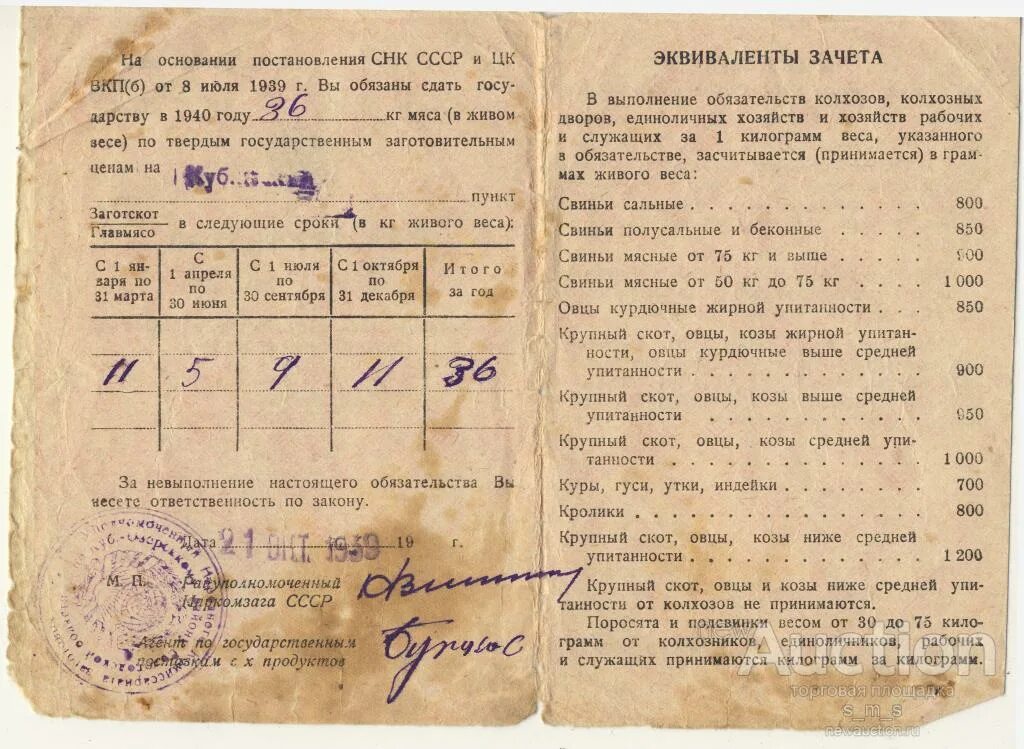 На основании постановления СНК СССР и ЦК
ВКП(б) от 8 июля 1939 г. Вы обязаны сдать госу-
дарству в 1940 году 36 кг мяса (в живом
весе) по твердым государственным заготовительным
ценам на
пункт
Заготскот
Главмясо
в следующие сроки (в кг живого веса):
С 1 ян-
варя по
31 марта
С
1 апреля
по
30 июня
С 1 июля
по
30 сентября
С 1 октября
по
31 декабря
Итого
за год
11 5 9 11 36
За невыполнение настоящего обязательства Вы
несете ответственность по закону.
Дата 21 ОКТ 1939 19 г.
М. П.
Райуполномоченный
Наркомзага СССР
Агент по государственным
поставкам с х продуктов
ЭКВИВАЛЕНТЫ ЗАЧЕТА
В выполнение обязательств колхозов, колхозных
дворов, единоличных хозяйств и хозяйств рабочих
и служащих за 1 килограмм веса, указанного
в обязательстве, засчитывается (принимается) в грам-
мах живого веса:
Свиньи сальные 800
Свиньи полусальные и беконные 850
Свиньи мясные от 75 кг и выше 900
Свиньи мясные от 50 кг до 75 кг 1 000
Овцы курдючные жирной упитанности 850
Крупный скот, овцы, козы жирной упитан-
ности, овцы курдючные выше средней
упитанности 900
Крупный скот, овцы, козы выше средней
упитанности 950
Крупный скот, овцы, козы средней упи-
танности 1 000
Куры, гуси, утки, индейки 700
Кролики 800
Крупный скот, овцы, козы ниже средней
упитанности 1 200
Крупный скот, овцы и козы ниже средней упи-
танности от колхозов не принимаются.
Поросята и подсвинки весом от 30 до 75 кило-
грамм от колхозников, единоличников, рабочих
и служащих принимаются килограмм за килограмм.
Auction
торговая площадка
s_m_s
newauction.ru